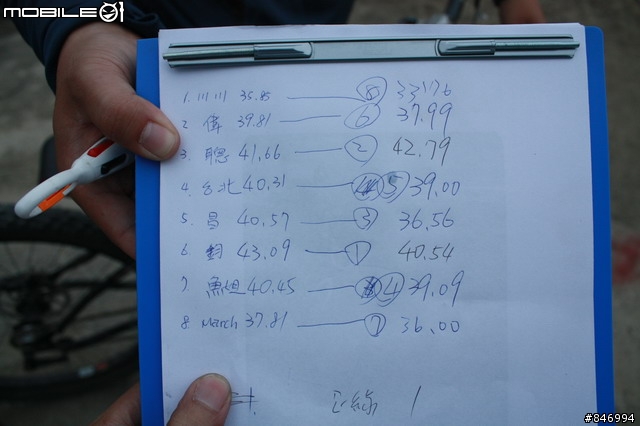 MOBILE01
1. 川川 35.85 ⑧ 33.76
2. 偉 39.81 ⑥ 37.99
3. 聰 41.66 ② 42.79
4. 台北 40.31 ⑤ 39.00
5. 昌 40.57 ③ 36.56
6. 43.09 ① 40.54
7. 魚但 40.45 ④ 39.09
8. March 37.81 ⑦ 36.00
1
#846994